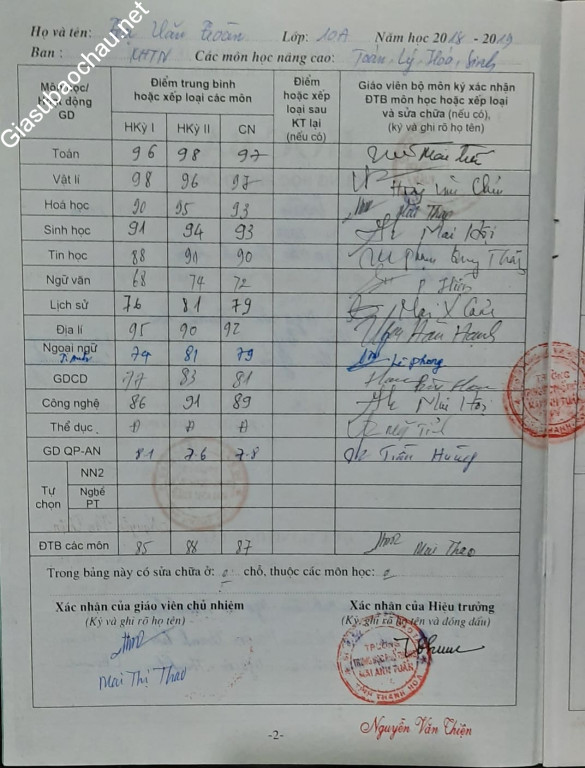 Họ và tên: Văn Lớp: 10A Năm học 2018 - 2019
Ban : KHTN Các môn học nâng cao: Toán, Lý, Hóa, Sinh
Giasubaochau.net
Môn học/ Hoạt động GD
Điểm trung bình hoặc xếp loại các môn
Điểm hoặc xếp loại sau KT lại (nếu có)
Giáo viên bộ môn ký xác nhận ĐTB môn học hoặc xếp loại và sửa chữa (nếu có), (ký và ghi rõ họ tên)
HKỳ I HKỳ II CN
Toán 96 98 97 Mai
Vật lí 98 96 97
Hoá học 90 95 93 Mai Thao
Sinh học 91 94 93 Mai Hội
Tin học 88 90 90 Phạm
Ngữ văn 68 74 72 Hiền
Lịch sử 76 81 79 Mai X
Địa lí 95 90 92 Hạnh
Ngoại ngữ 74 81 79 Lê Phong
T. Anh
GDCD 77 83 81
Công nghệ 86 91 89 Mai Hội
Thể dục Đ Đ Đ
GD QP-AN 81 7.6 7.8 Tiến Hùng
Tự chọn
NN2
Nghề PT
ĐTB các môn 85 88 87 Mai Thao
Trong bảng này có sửa chữa ở: 0 chỗ, thuộc các môn học: 0
Xác nhận của giáo viên chủ nhiệm Xác nhận của Hiệu trưởng
(Ký và ghi rõ họ tên) (Ký, ghi rõ họ tên và đóng dấu)
Mai Thị Thao
TRƯỜNG
TRUNG HỌC PHỔ THÔNG
MAI ANH TUẤN
TỈNH THANH HOÁ
Nguyễn Văn Thiện
-2-